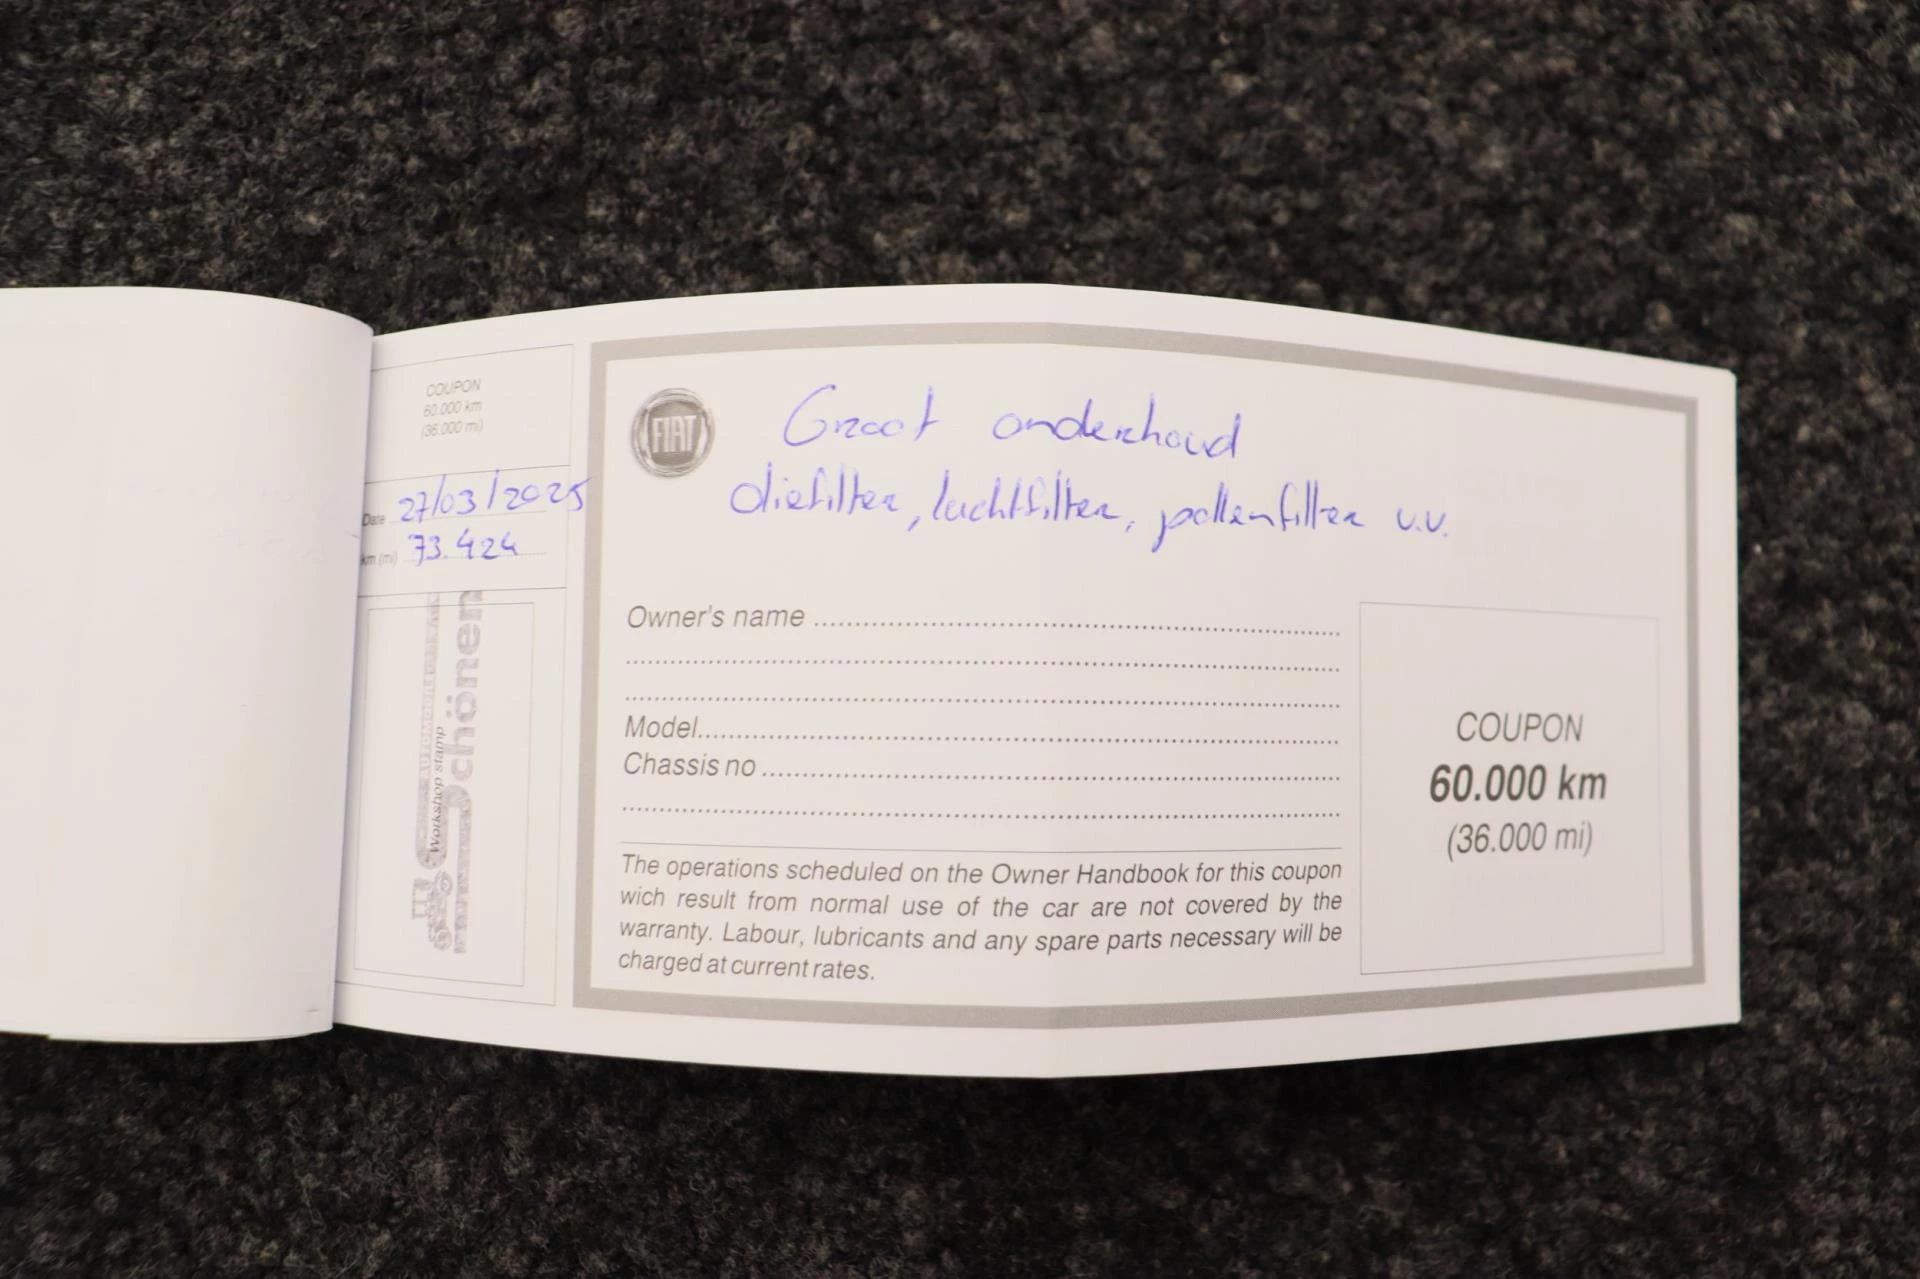 COUPON
60.000 km
(36.000 mi)
Date 27/03/2025
km (mi) 73.424
Workshop stamp
Schönen
FIAT
Groot onderhoud
oliefilter, luchtfilter, pollenfilter v.v.
Owner's name
Model
Chassis no
The operations scheduled on the Owner Handbook for this coupon
wich result from normal use of the car are not covered by the
warranty. Labour, lubricants and any spare parts necessary will be
charged at current rates.
COUPON
60.000 km
(36.000 mi)